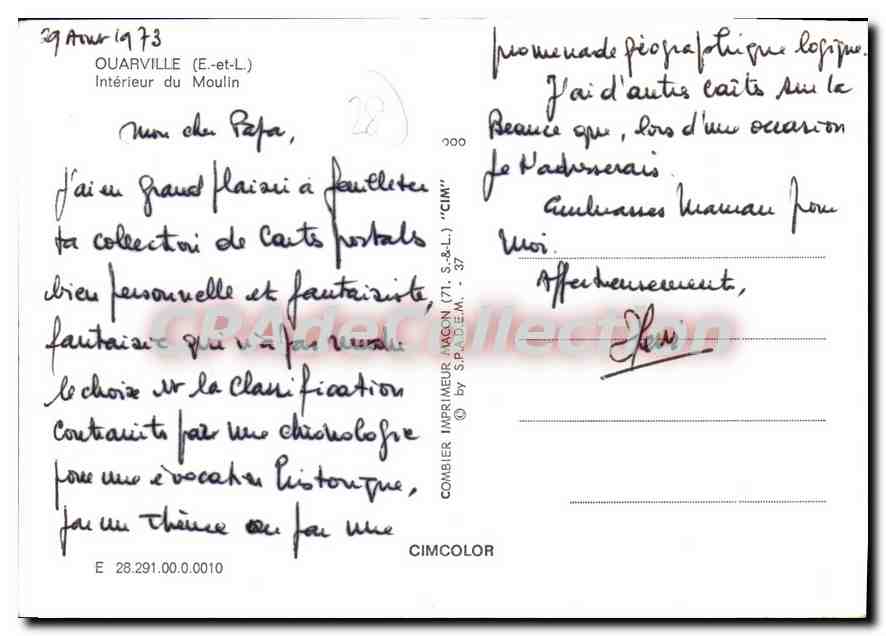 29 Aout 1973
OUARVILLE (E.-et-L.)
Intérieur du Moulin
28
Mon cher Papa,
J'ai eu grand plaisir à feuilleter
ta collection de Cartes postales
bien personnelle et fantaisiste,
fantaisie qui n'a pas
le choix et la classification
contraints par une chronologie
pour une évocation historique,
par un thème ou par une
promenade géographique logique.
J'ai d'autres cartes sur la
Beauce que, lors d'une occasion
je t'adresserais.
Embrasses Maman pour
moi.
Affectueusement,
COMBIER IMPRIMEUR MACON (71. S.-&-L.) "CIM"
© by S.P.A.D.E.M. - 37
CIMCOLOR
E 28.291.00.0.0010
CRAdeCollection